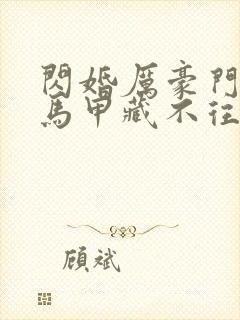 閃婚厲豪門
馬甲藏不往
顧斌